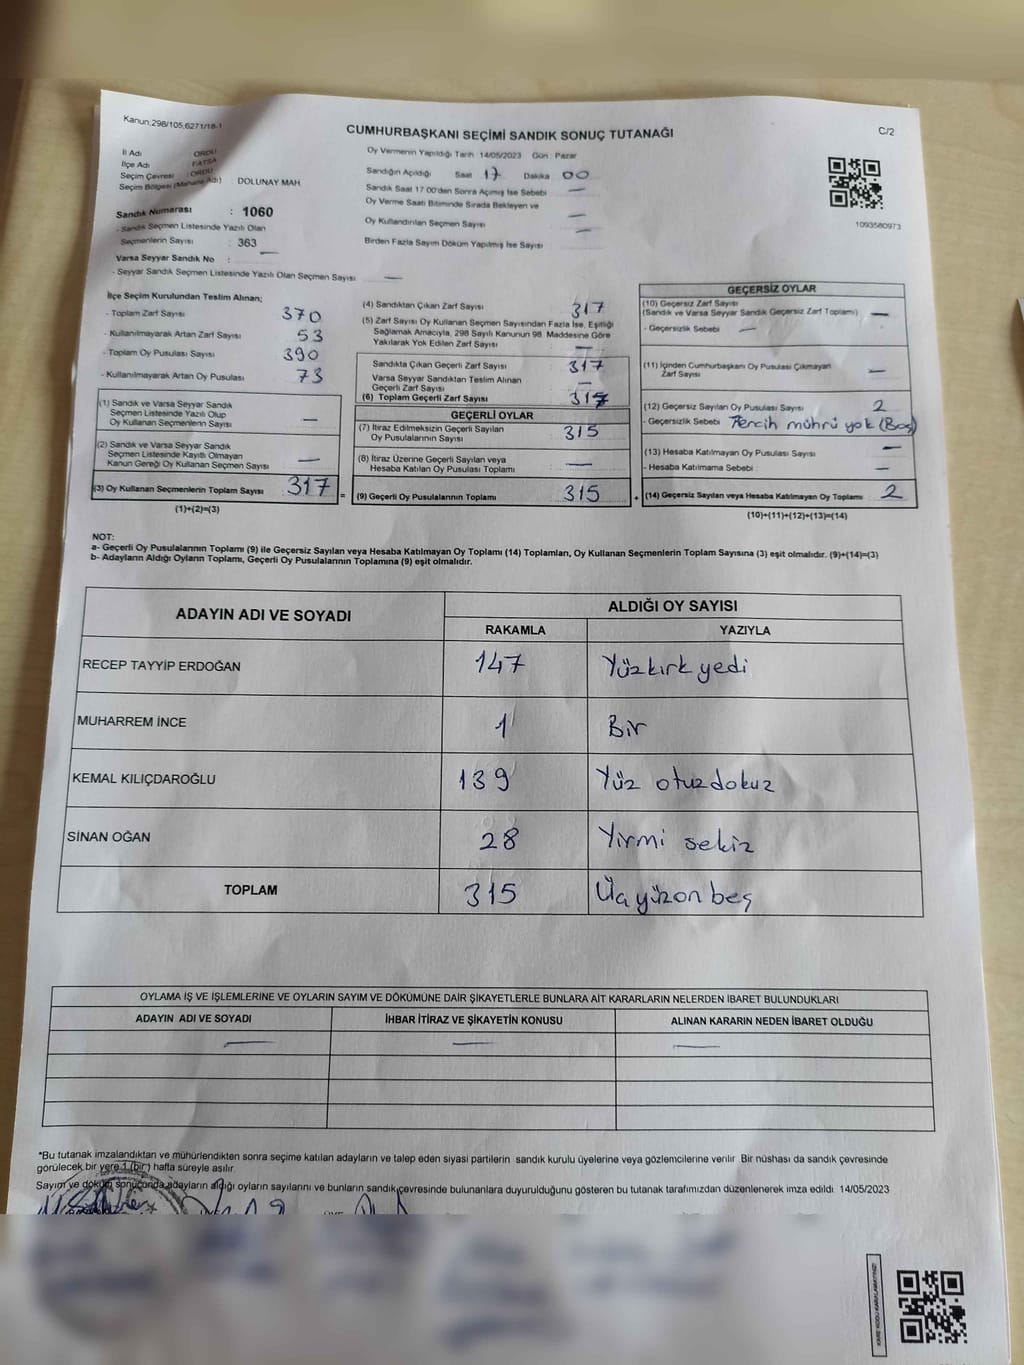 Kanun:298/105,6271/18-1
CUMHURBAŞKANI SEÇİMİ SANDIK SONUÇ TUTANAĞI
C/2
İl Adı : ORDU
İlçe Adı : FATSA
Seçim Çevresi : ORDU
Seçim Bölgesi (Mahalle Adı) DOLUNAY MAH
Sandık Numarası : 1060
- Sandık Seçmen Listesinde Yazılı Olan
Seçmenlerin Sayısı : 363
Varsa Seyyar Sandık No : —
- Seyyar Sandık Seçmen Listesinde Yazılı Olan Seçmen Sayısı —
Oy Vermenin Yapıldığı Tarih 14/05/2023 Gün Pazar
Sandığın Açıldığı Saat 17 Dakika 00
Sandık Saat 17 00'den Sonra Açılmış İse Sebebi —
Oy Verme Saati Bitiminde Sırada Bekleyen ve
Oy Kullandırılan Seçmen Sayısı —
Birden Fazla Sayım Döküm Yapılmış İse Sayısı —
1093580973
İlçe Seçim Kurulundan Teslim Alınan;
- Toplam Zarf Sayısı 370
- Kullanılmayarak Artan Zarf Sayısı 53
- Toplam Oy Pusulası Sayısı 390
- Kullanılmayarak Artan Oy Pusulası 73
(1) Sandık ve Varsa Seyyar Sandık
Seçmen Listesinde Yazılı Olup
Oy Kullanan Seçmenlerin Sayısı —
(2) Sandık ve Varsa Seyyar Sandık
Seçmen Listesinde Kayıtlı Olmayan
Kanun Gereği Oy Kullanan Seçmen Sayısı —
(3) Oy Kullanan Seçmenlerin Toplam Sayısı 317 =
(1)+(2)=(3)
(4) Sandıktan Çıkan Zarf Sayısı 317
(5) Zarf Sayısı Oy Kullanan Seçmen Sayısından Fazla İse, Eşitliği
Sağlamak Amacıyla, 298 Sayılı Kanunun 98. Maddesine Göre
Yakılarak Yok Edilen Zarf Sayısı —
Sandıkta Çıkan Geçerli Zarf Sayısı 317
Varsa Seyyar Sandıktan Teslim Alınan
Geçerli Zarf Sayısı —
(6) Toplam Geçerli Zarf Sayısı 317
GEÇERLİ OYLAR
(7) İtiraz Edilmeksizin Geçerli Sayılan
Oy Pusulalarının Sayısı 315
(8) İtiraz Üzerine Geçerli Sayılan veya
Hesaba Katılan Oy Pusulası Toplamı —
(9) Geçerli Oy Pusulalarının Toplamı 315 +
GEÇERSİZ OYLAR
(10) Geçersiz Zarf Sayısı
(Sandık ve Varsa Seyyar Sandık Geçersiz Zarf Toplamı) —
- Geçersizlik Sebebi —
(11) İçinden Cumhurbaşkanı Oy Pusulası Çıkmayan
Zarf Sayısı —
(12) Geçersiz Sayılan Oy Pusulası Sayısı 2
- Geçersizlik Sebebi Tercih mührü yok (Boş)
(13) Hesaba Katılmayan Oy Pusulası Sayısı —
- Hesaba Katılmama Sebebi —
(14) Geçersiz Sayılan veya Hesaba Katılmayan Oy Toplamı 2
(10)+(11)+(12)+(13)=(14)
NOT:
a- Geçerli Oy Pusulalarının Toplamı (9) ile Geçersiz Sayılan veya Hesaba Katılmayan Oy Toplamı (14) Toplamları, Oy Kullanan Seçmenlerin Toplam Sayısına (3) eşit olmalıdır. (9)+(14)=(3)
b- Adayların Aldığı Oyların Toplamı, Geçerli Oy Pusulalarının Toplamına (9) eşit olmalıdır.
ADAYIN ADI VE SOYADI ALDIĞI OY SAYISI
RAKAMLA YAZIYLA
RECEP TAYYİP ERDOĞAN 147 Yüzkırk yedi
MUHARREM İNCE 1 Bir
KEMAL KILIÇDAROĞLU 139 Yüz otuzdokuz
SİNAN OĞAN 28 Yirmi sekiz
TOPLAM 315 Üçyüzon beş
OYLAMA İŞ VE İŞLEMLERİNE VE OYLARIN SAYIM VE DÖKÜMÜNE DAİR ŞİKAYETLERLE BUNLARA AİT KARARLARIN NELERDEN İBARET BULUNDUKLARI
ADAYIN ADI VE SOYADI İHBAR İTİRAZ VE ŞİKAYETİN KONUSU ALINAN KARARIN NEDEN İBARET OLDUĞU
— — —
*Bu tutanak imzalandıktan ve mühürlendikten sonra seçime katılan adayların ve talep eden siyasi partilerin sandık kurulu üyelerine veya gözlemcilerine verilir. Bir nüshası da sandık çevresinde
görülecek bir yere 1 (bir) hafta süreyle asılır.
Sayım ve döküm sonucunda adayların aldığı oyların sayılarını ve bunların sandık çevresinde bulunanlara duyurulduğunu gösteren bu tutanak tarafımızdan düzenlenerek imza edildi. 14/05/2023